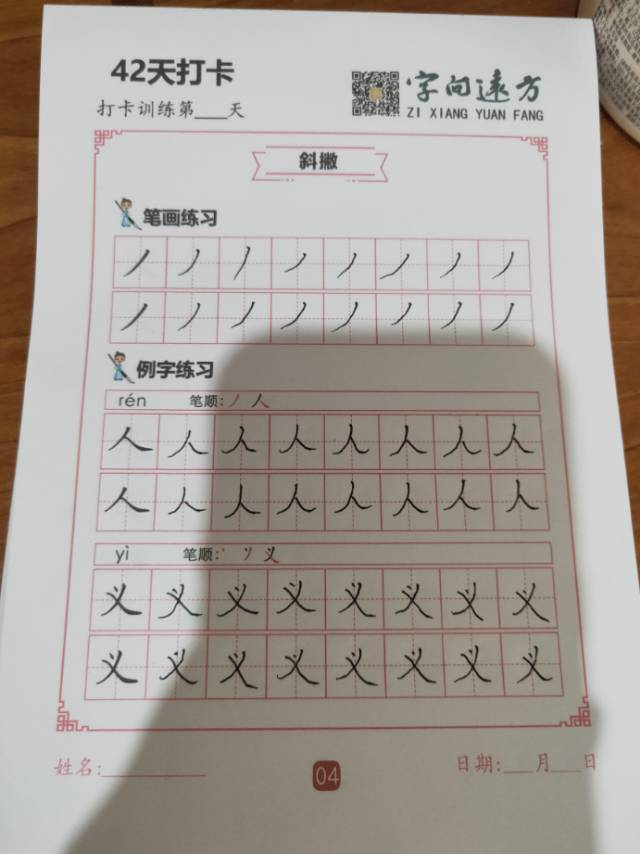 42天打卡
打卡训练第___天
字向远方
ZI XIANG YUAN FANG
斜撇
笔画练习
丿丿丿丿丿丿丿丿
丿丿丿丿丿丿丿丿
例字练习
rén 笔顺：丿 人
人人人人人人人人
人人人人人人人人
yì 笔顺：丶 丷 义
义义义义义义义义
义义义义义义义义
姓名:________ 04 日期:___月___日